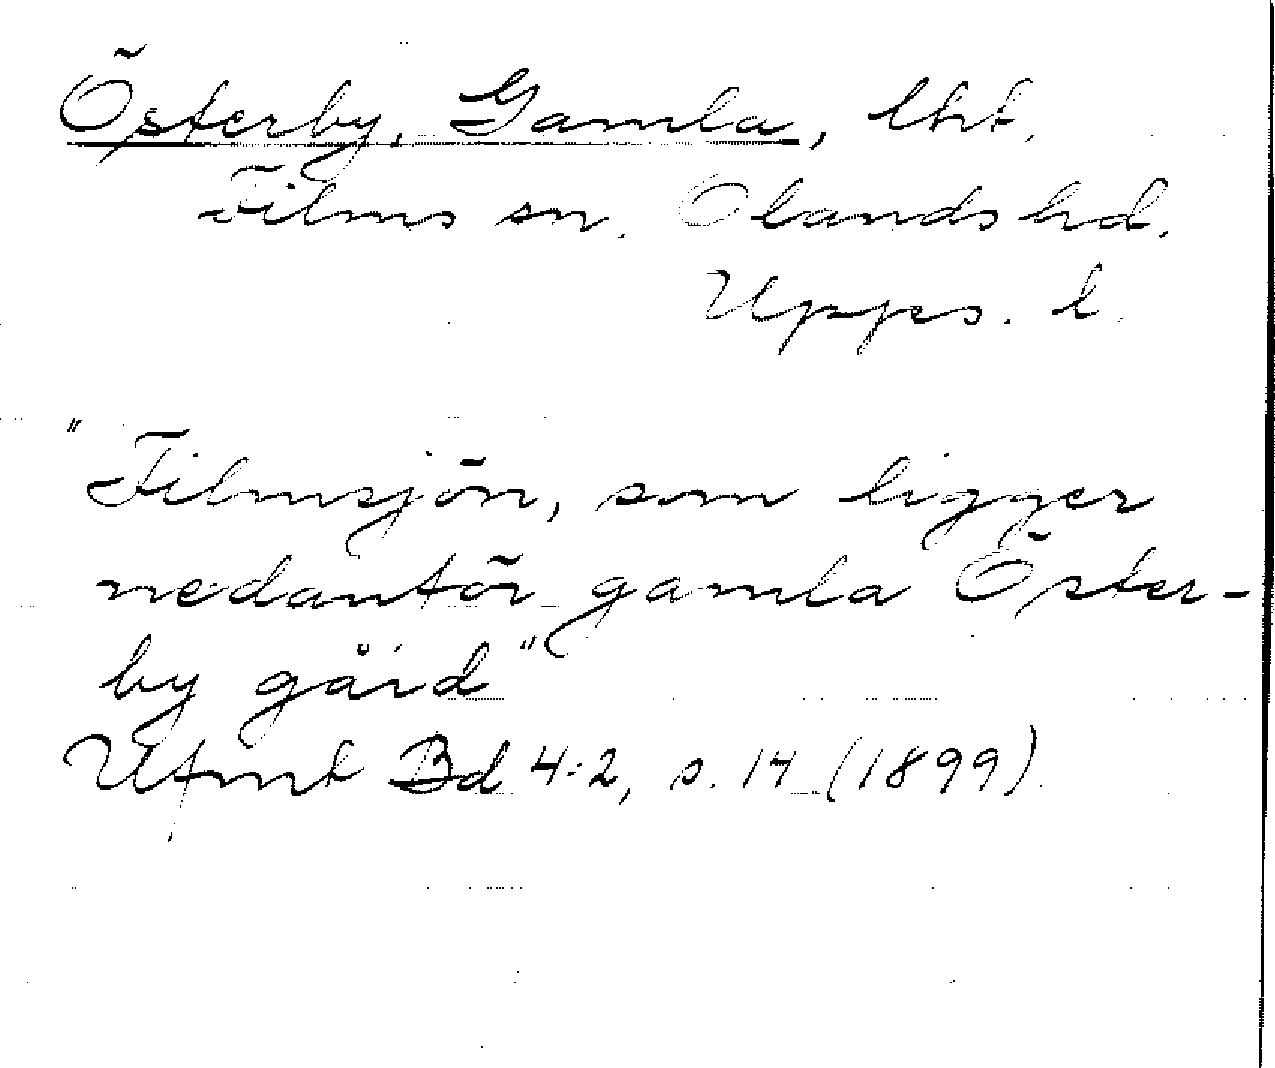 Österby, Gamla, lht.
Films sn. Olands hd.
Upps. l.
"Filmsjön, som ligger
nedanför gamla Öster-
by gård"
Ufmt Bd 4:2, s. 14 (1899)